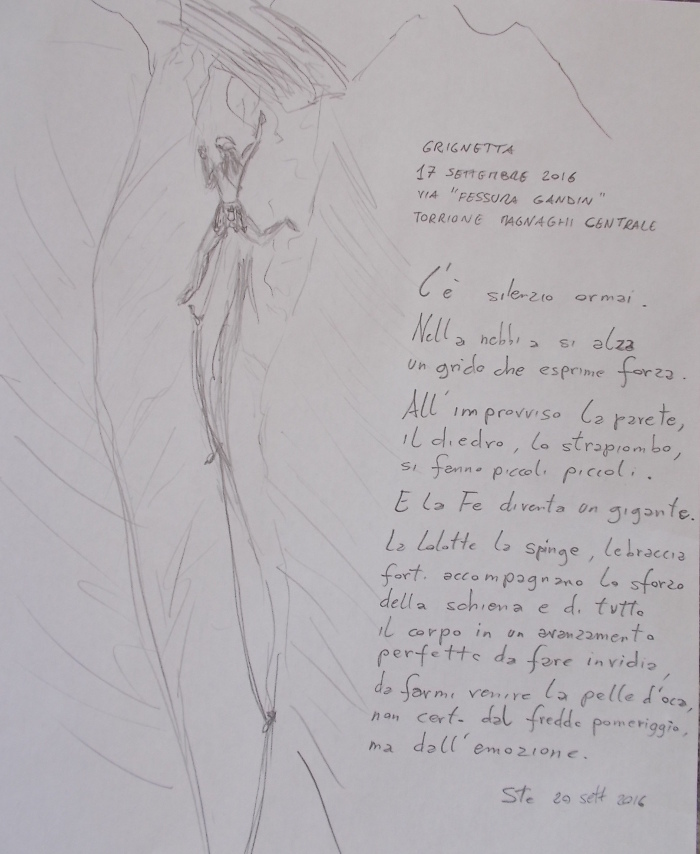 GRIGNETTA
17 SETTEMBRE 2016
VIA "FESSURA GANDIN"
TORRIONE MAGNAGHI CENTRALE
C'è silenzio ormai.
Nella nebbia si alza
un grido che esprime forza.
All'improvviso la parete,
il diedro, lo strapiombo,
si fanno piccoli piccoli.
E la Fe diventa un gigante.
La lolotte la spinge, le braccia
forti accompagnano lo sforzo
della schiena e di tutto
il corpo in un avanzamento
perfetto da fare invidia,
da farmi venire la pelle d'oca,
non certo dal freddo pomeriggio,
ma dall'emozione.
Ste 20 sett 2016